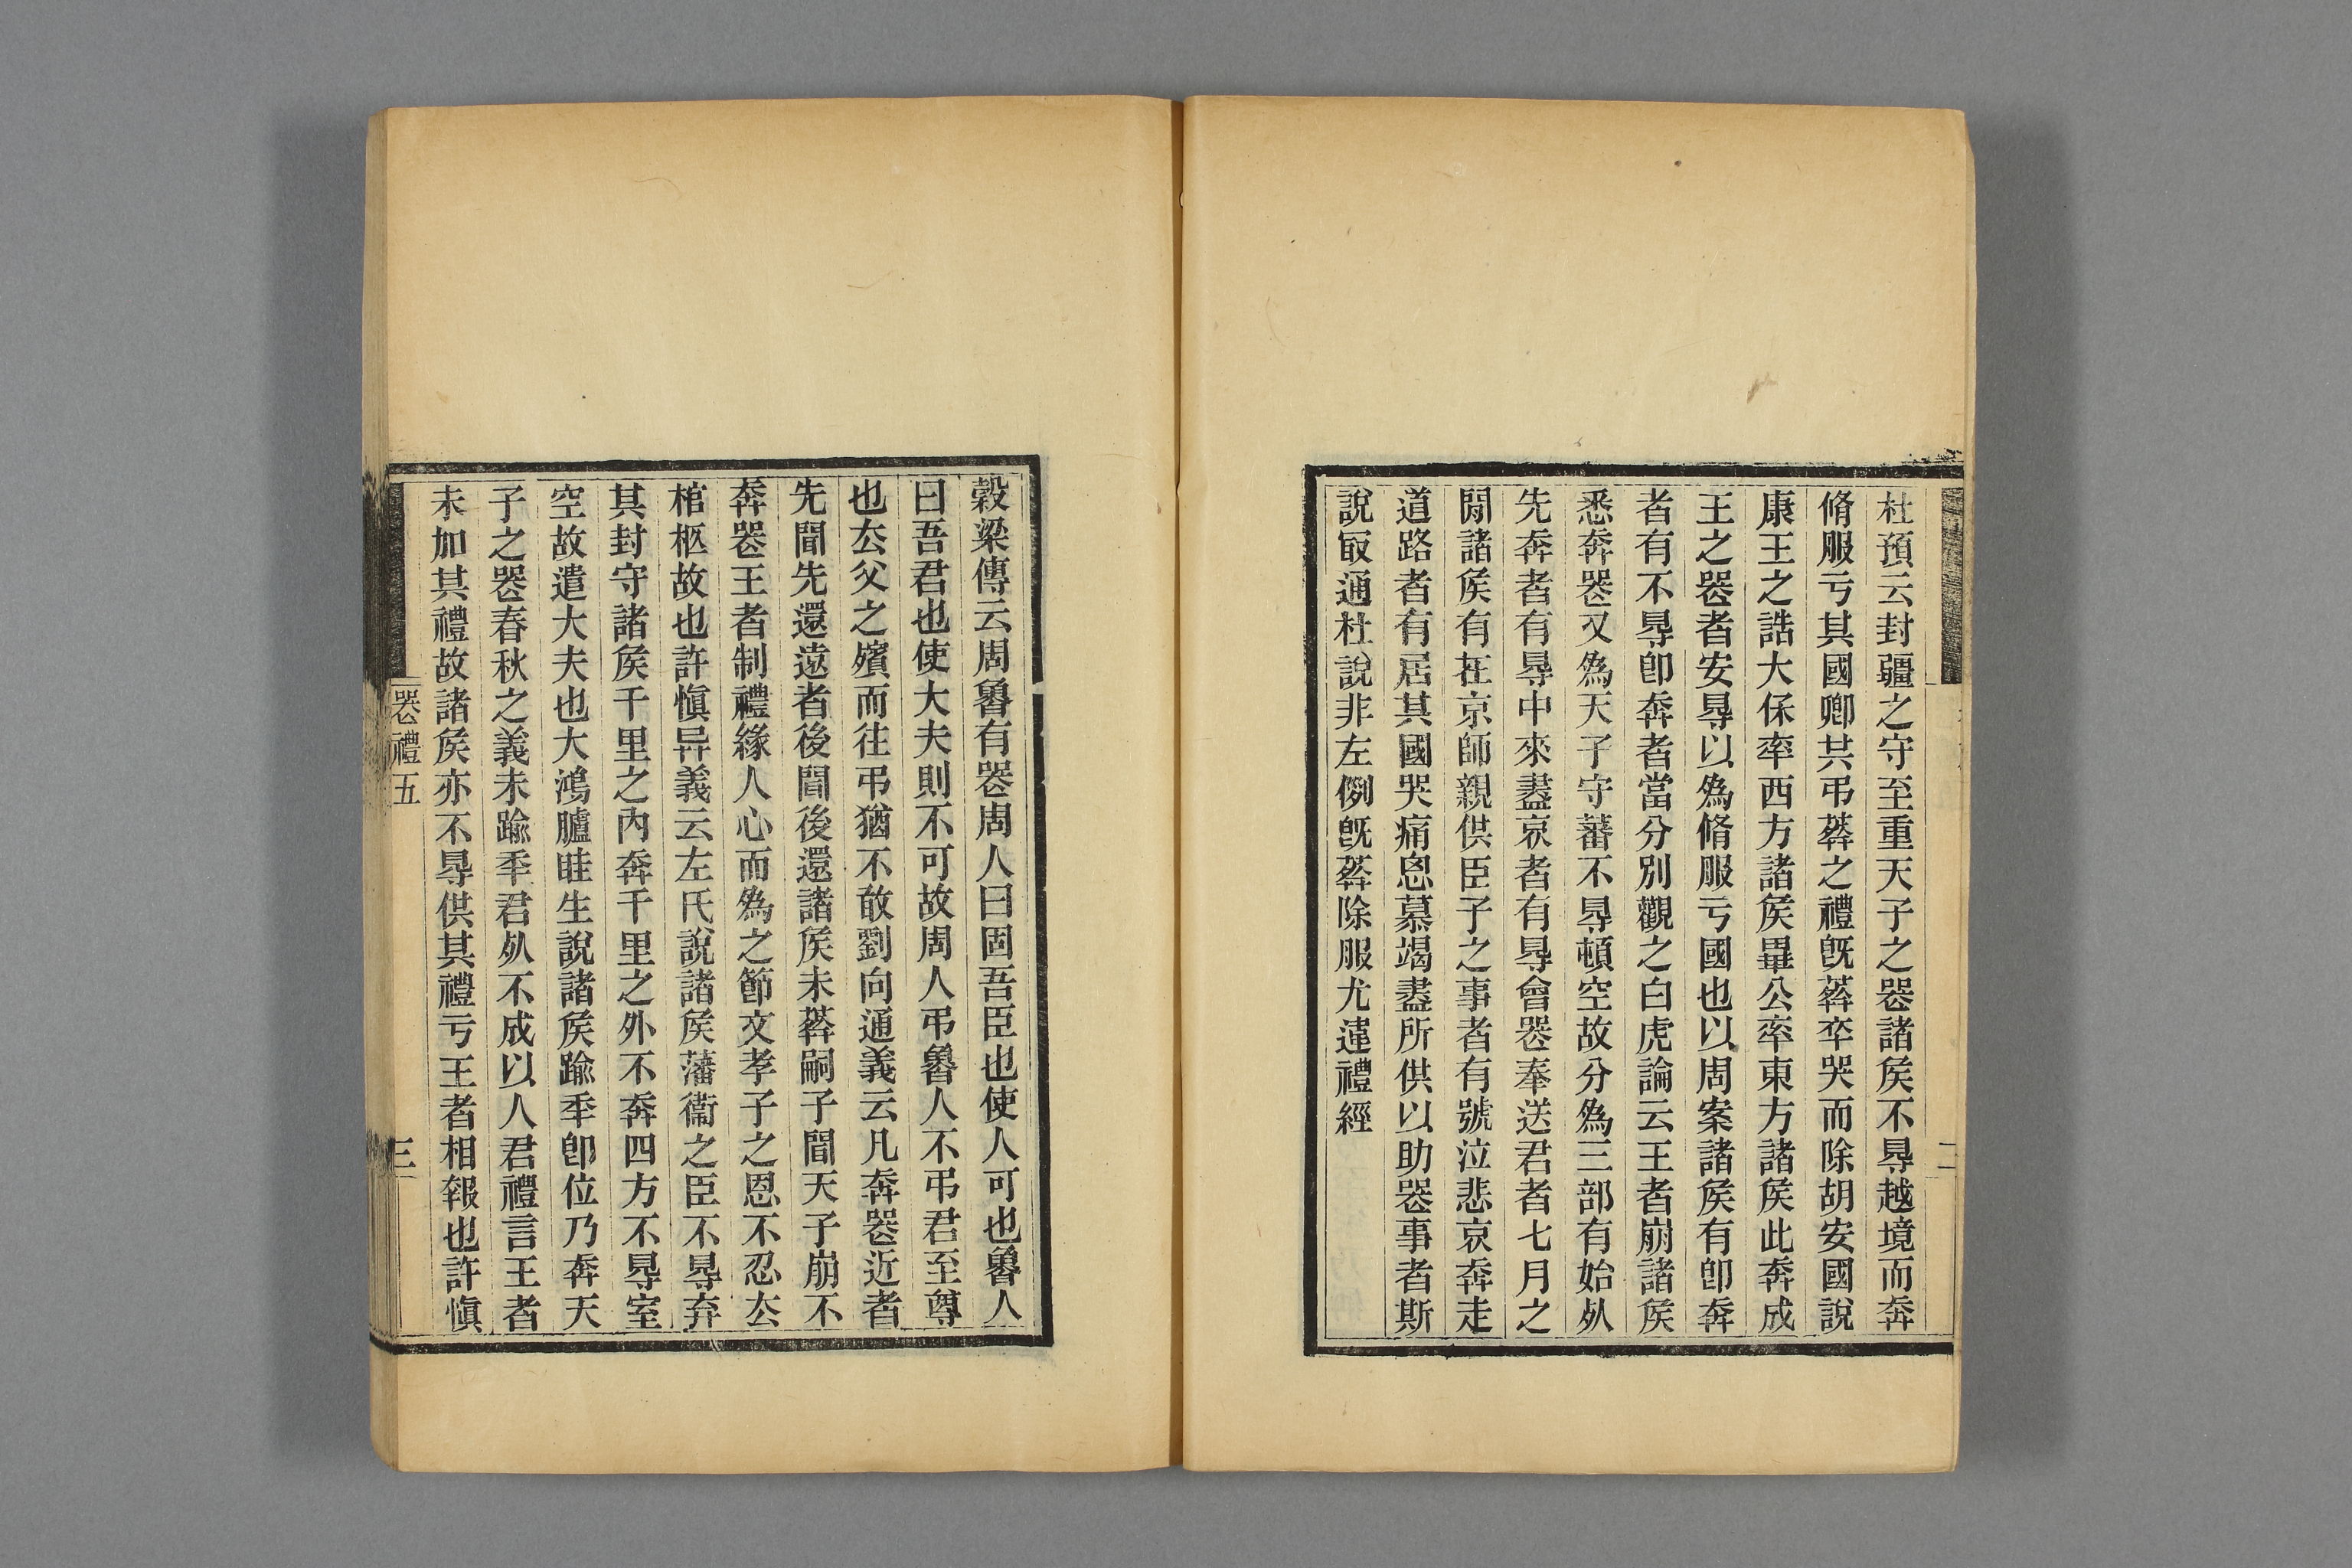 杜預云封疆之守至重天子之喪諸矦不㝵越境而奔
脩服亏其國卿共弔葬之禮旣葬卒哭而除胡安國說
康王之誥大保率西方諸矦畢公率東方諸矦此奔成
王之喪者安㝵以爲脩服亏國也以周案諸矦有卽奔
者有不㝵卽奔者當分別觀之白虎論云王者崩諸矦
悉奔喪又爲天子守蕃不㝵頓空故分爲三部有始死
先奔者有㝵中來盡哀者有㝵會喪奉送君者七月之
閒諸矦有在京師親供臣子之事者有號泣悲哀奔走
道路者有居其國哭痛思慕竭盡所供以助喪事者斯
說㝡通杜說非左例旣葬除服尤違禮經
二
穀梁傳云周魯有喪周人曰固吾臣也使人可也魯人
曰吾君也使大夫則不可故周人弔魯人不弔君至尊
也厺父之殯而往弔猶不敢劉向通義云凡奔喪近者
先聞先還遠者後聞後還諸矦未葬嗣子聞天子崩不
奔喪王者制禮緣人心而爲之節文孝子之恩不忍厺
棺柩故也許愼异義云左氏說諸矦藩衞之臣不㝵弃
其封守諸矦千里之內奔千里之外不奔四方不㝵室
空故遣大夫也大鴻臚眭生說諸矦踰秊卽位乃奔天
子之喪春秋之義未踰秊君死不成以人君禮言王者
未加其禮故諸矦亦不㝵供其禮亏王者相報也許愼
喪禮五
三